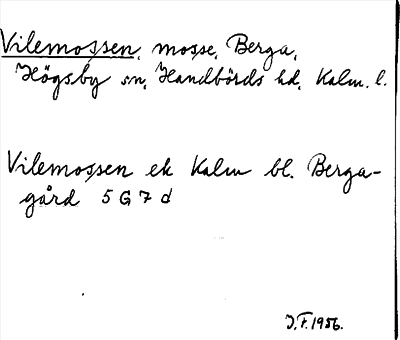 Vilemossen, mosse, Berga,
Högsby sn, Handbörds hd, Kalm. l.
Vilemossen ek Kalm bl. Berga-
gård 5 G 7 d
J.F. 1956.